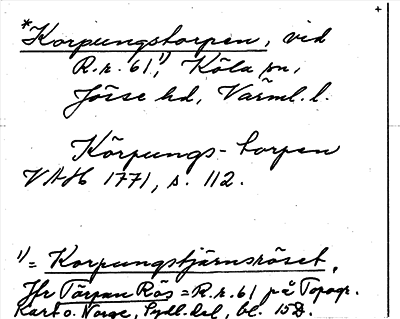 *Korpungstorpen, vid
R.r. 61¹⁾, Köla sn,
Jösse hd, Värml. l.
Körpungs-torpen
VAH 1771, s. 112.
¹⁾ = Korpungstjärnsröset,
Jfr Tärpan Rös = R.r. 61 på Topogr.
Kart o. Norge, Sydl. del, bl. 15B.